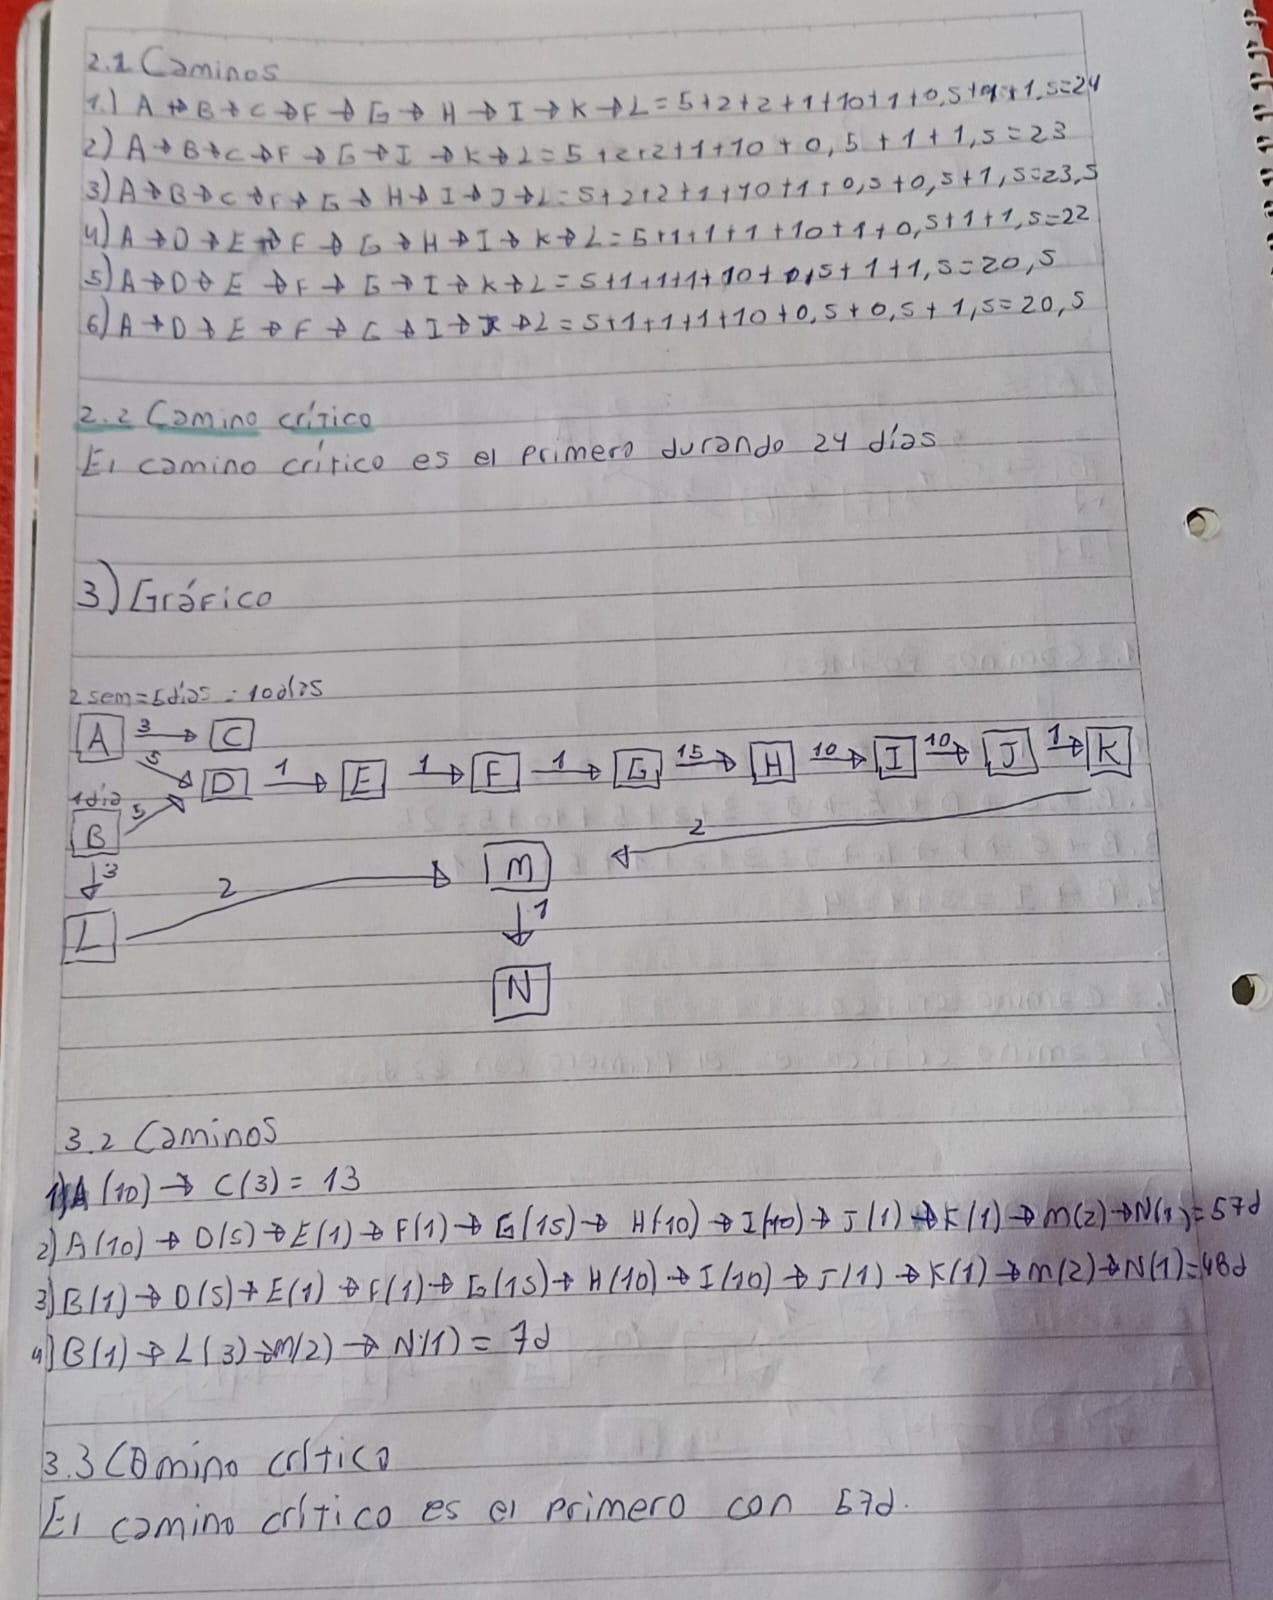 2.1 Caminos
1.) A → B → C → F → G → H → I → K → L = 5+2+2+1+10+1+0,5+1+1,5=24
2) A → B → C → F → G → I → K → L = 5+2+2+1+10+0,5+1+1,5=23
3) A → B → C → F → G → H → I → J → L = 5+2+2+1+10+1+0,5+0,5+1,5=23,5
4) A → D → E → F → G → H → I → K → L = 5+1+1+1+10+1+0,5+1+1,5=22
5) A → D → E → F → G → I → K → L = 5+1+1+1+10+0,5+1+1,5=20,5
6) A → D → E → F → G → I → J → L = 5+1+1+1+10+0,5+0,5+1,5=20,5
2.2 Camino crítico
El camino crítico es el primero durando 24 días
3) Gráfico
2 sem=5días = 10días
A 3 → C
5
D 1 → E 1 → F 1 → G 15 → H 10 → I 10 → J 1 → K
1día
B 5
↓3
2
2
M
L
↓1
N
3.2 Caminos
1) A (10) → C(3) = 13
2) A(10) → D(5) → E(1) → F(1) → G(15) → H(10) → I(10) → J(1) → K(1) → M(2) → N(1)=57d
3) B(1) → D(5) → E(1) → F(1) → G(15) → H(10) → I(10) → J(1) → K(1) → M(2) → N(1)=48d
4) B(1) → L(3) → M(2) → N(1) = 7d
3.3 Camino crítico
El camino crítico es el primero con 57d.